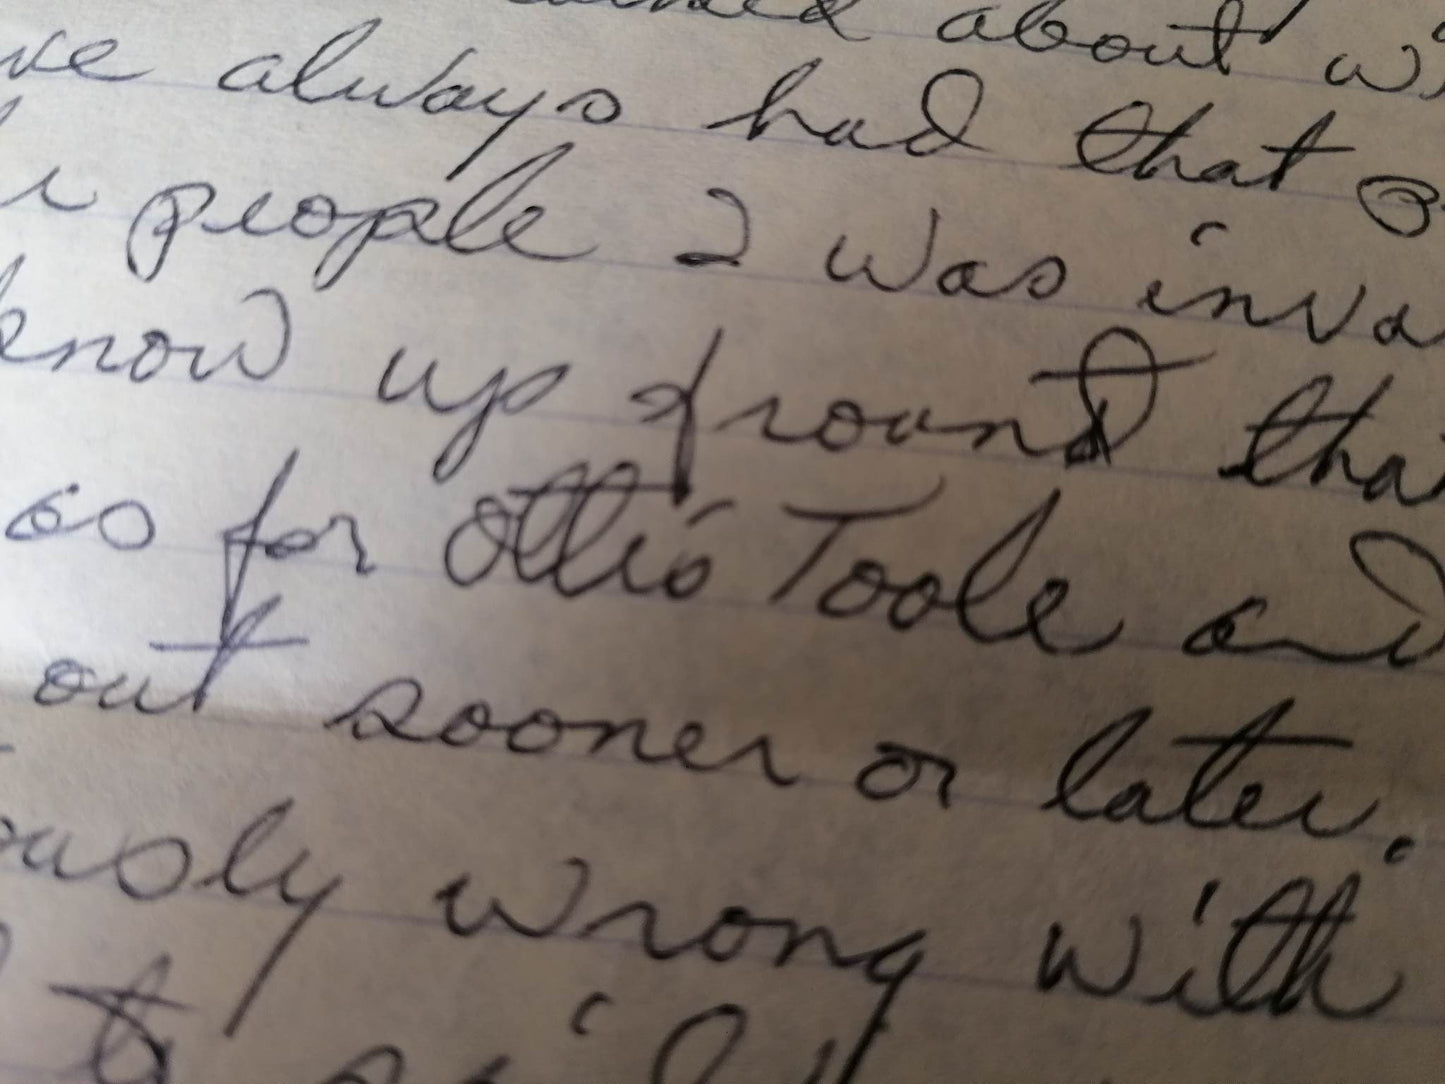 about
always had that
people I was
know up front
as for Ottis Toole and
out sooner or later.
wrong with